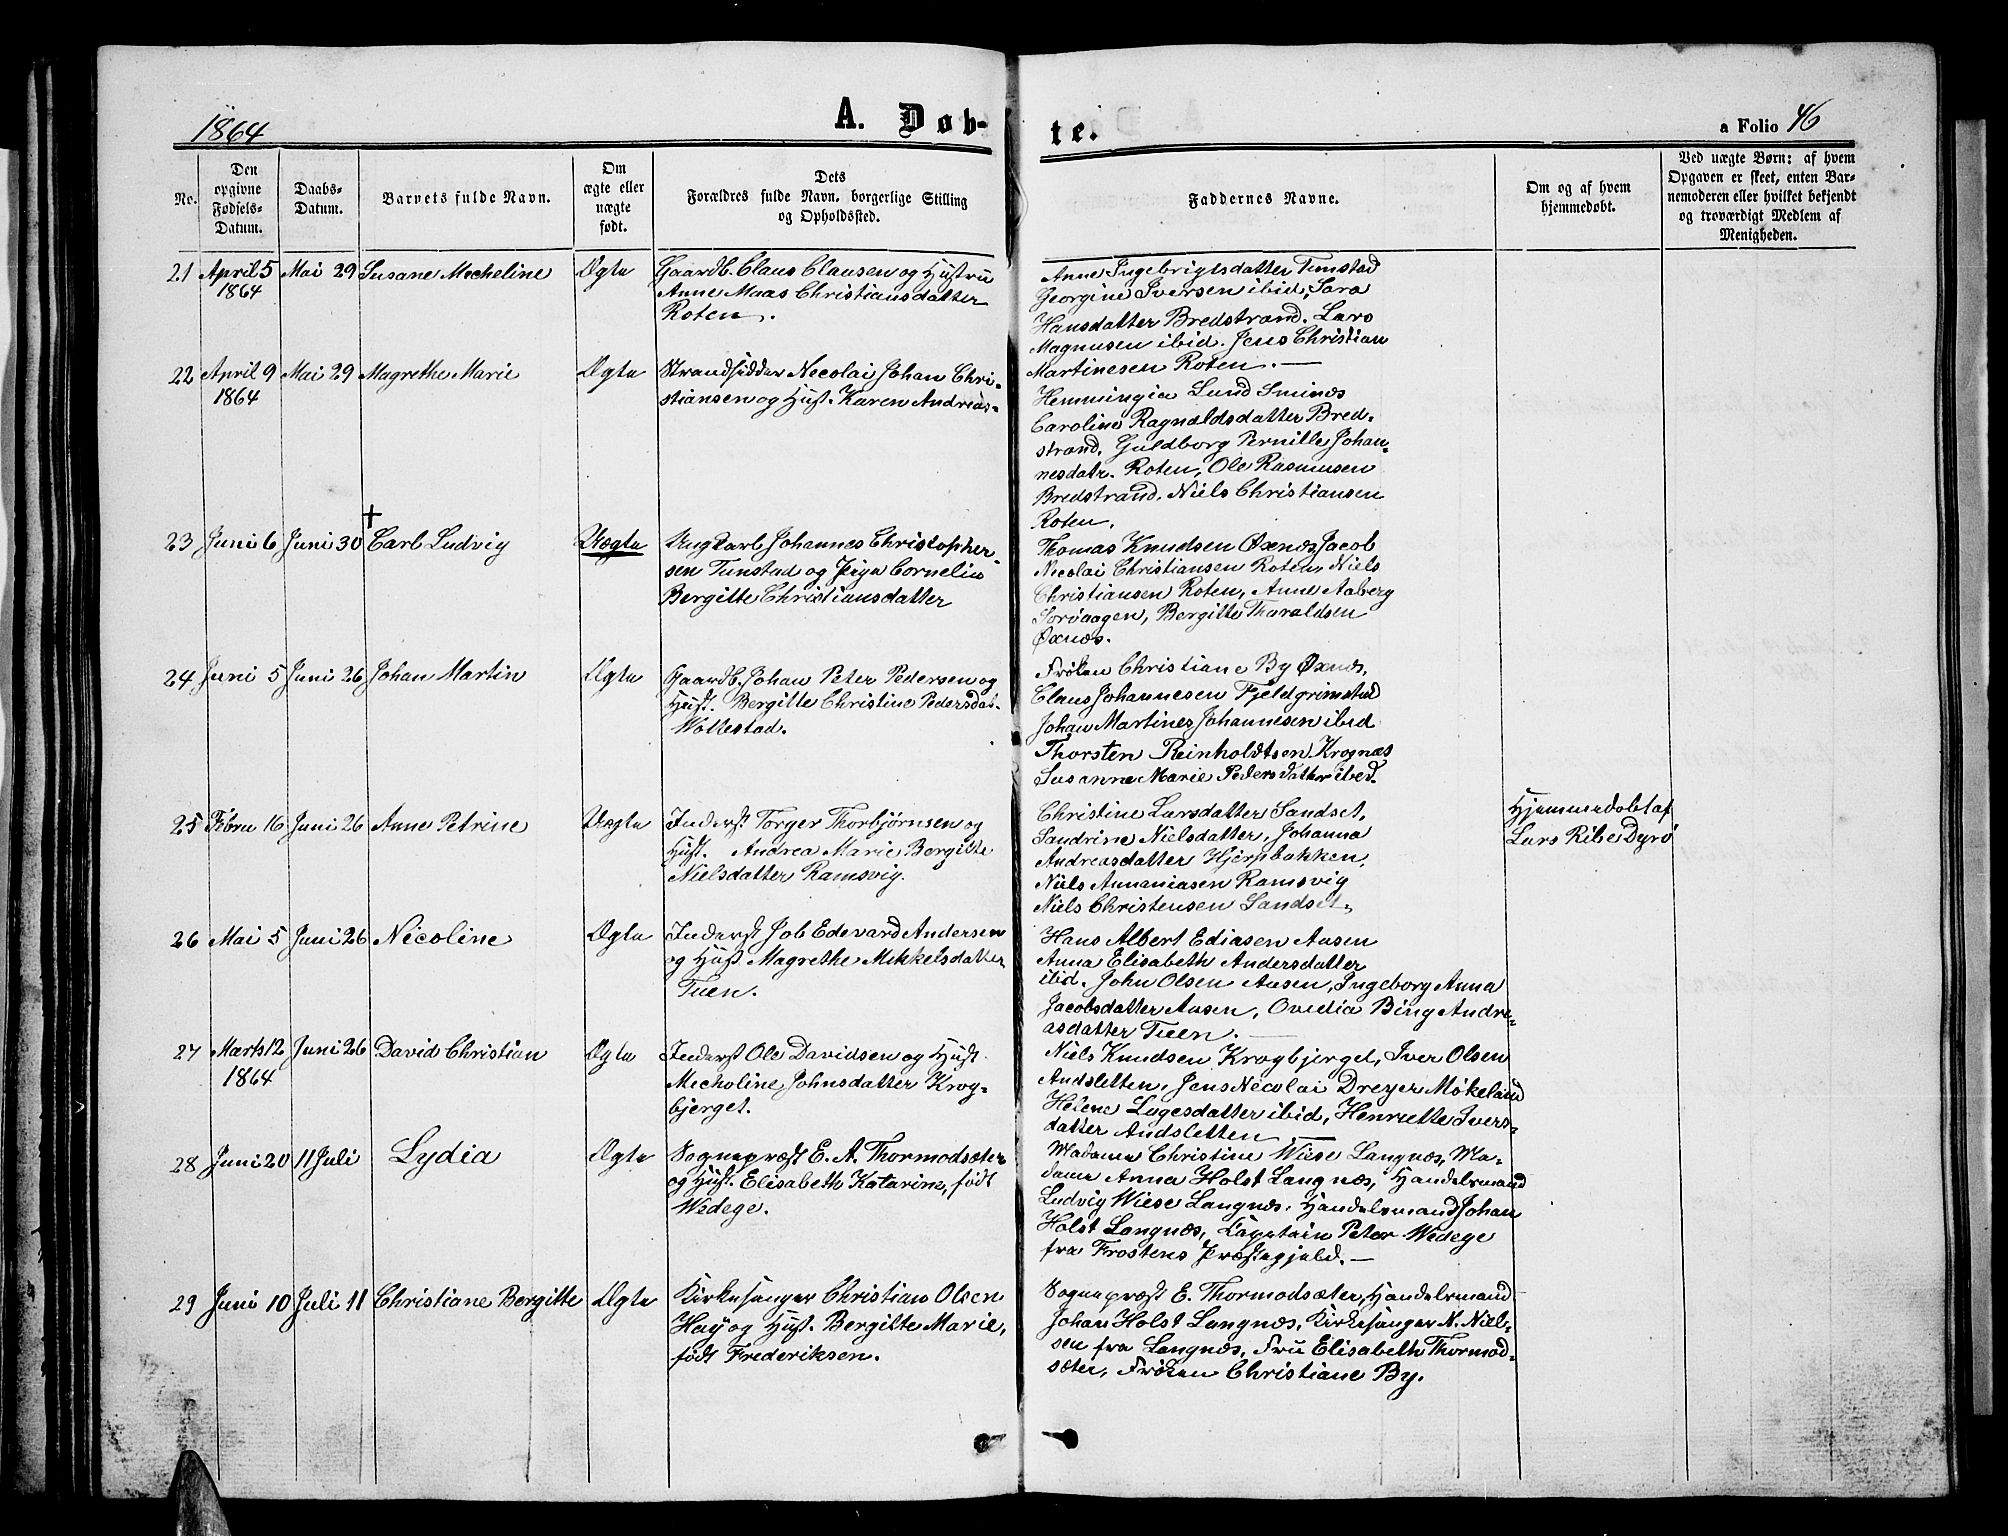 1864
A. Døb-
te.
a Folio 46
No.
Den
opgivne
Fødsels-
Datum.
Daabs-
Datum.
Barnets fulde Navn.
Om
ægte eller
uægte
født.
Dets
Forældres fulde Navn, borgerlige Stilling
og Opholdssted.
Faddernes Navne.
Om og af hvem
hjemmedøbt.
Ved uægte Børn: af hvem
Opgaven er skeet, enten Bar-
nemoderen eller hvilket bekjendt
og troværdigt Medlem af
Menigheden.
21 April 5 Mai 29 Susane Mecheline Ægte Gaardb. Claus Clausen og Hustru
1864 Anne Maas Christiansdatter
Roten.
Anne Ingebrigtsdatter Tunstad
Georgine Iversen ibid, Sara
Hansdatter Bredstrand. Lars
Magnusen ibid. Jens Christian
Martinesen Roten. —
22 April 9 Mai 29 Magrethe Marie Ægte Strandsidder Necolai Johan Chri-
1864 stiansen og Hust. Karen Andreas-
Hemmingia Lund Smines
Caroline Ragnaldsdatter Bred-
strand, Guldborg Pernille Johan-
nesdatr. Roten, Ole Rasmusen
Bredstrand, Niels Christiansen
Roten.
23 Juni 6 Juni 30 † Carl Ludvig Uægte Ungkarl Johannes Christopher-
sen Tunstad og Pige Cornelia
Bergitte Christiansdatter
Thomas Knudsen Øxnes, Jacob
Necolai Christiansen Roten, Niels
Christiansen Roten, Anne Aaberg
Sorvaagen, Bergitte Tharaldsen
Øxnes.
24 Juni 5 Juni 26 Johan Martin Ægte Gaardb. Johan Peter Pedersen og
Hust. Bergitte Christine Pedersdat.
Wollestad.
Frøken Christiane By Øxnes,
Claus Johannesen Fjeldgrimstad
Johan Martines Johannesen ibid
Thorsten Reinholdtsen Krognæs
Susanne Marie Pedersdatter ibid.
25 Febru 16 Juni 26 Anne Petrine Uægte Inderst Torger Thorbjørnsen og
Hust. Andrea Marie Bergitte
Nielsdatter Ramsvig.
Christine Larsdatter Sandset,
Sandrine Nielsdatter, Johanna
Andreasdatter Hjerpbakken,
Niels Annaniasen Ramsvig
Niels Christensen Sandset.
Hjemmedøbt af
Lars Ribe Dyrø
26 Mai 5 Juni 26 Nicoline Ægte Inderst Job Edevard Andersen
og Hust Magrethe Mikkelsdatter
Tuen.
Hans Albert Ediasen Aasen
Anna Elisabeth Andersdatter
ibid. John Olsen Aasen, Ingeborg Anna
Jacobsdatter Aasen, Ovedia Bing Andre-
asdatter Tuen. —
27 Marts 12 Juni 26 David Christian Ægte Inderst Ole Davidsen og Hust.
1864 Mecholine Johnsdatter Krog-
bjerget.
Niels Knudsen Krogbjerget, Iver Olsen
Andsletten, Jens Necolai Dreyer Møkeland
Helene Lagesdatter ibid, Henriette Ivers-
datter Andsletten —
28 Juni 20 11 Juli Lydia Ægte Sognepræst E. A. Thormodsæter
og Hust. Elisabeth Katarine, født
Wedege.
Madame Christine Wiese Langnæs, Ma-
dame Anna Holst Langnæs, Handelsmand
Ludvig Wiese Langnæs, Handelsmand Johan
Holst Langnæs, Capitain Peter Wedege
fra Frostens Præstegjeld. —
29 Juni 10 Juli 11 Christiane Bergitte Ægte Kirkesanger Christian Olsen
Høy og Hust. Bergitte Marie,
født Frederiksen.
Sognepræst E. Thormodsæter, Handelsmand
Johan Holst Langnæs, Kirkesanger N. Niel-
sen fra Langnæs, Fru Elisabeth Thormod-
sæter, Frøken Christiane By.